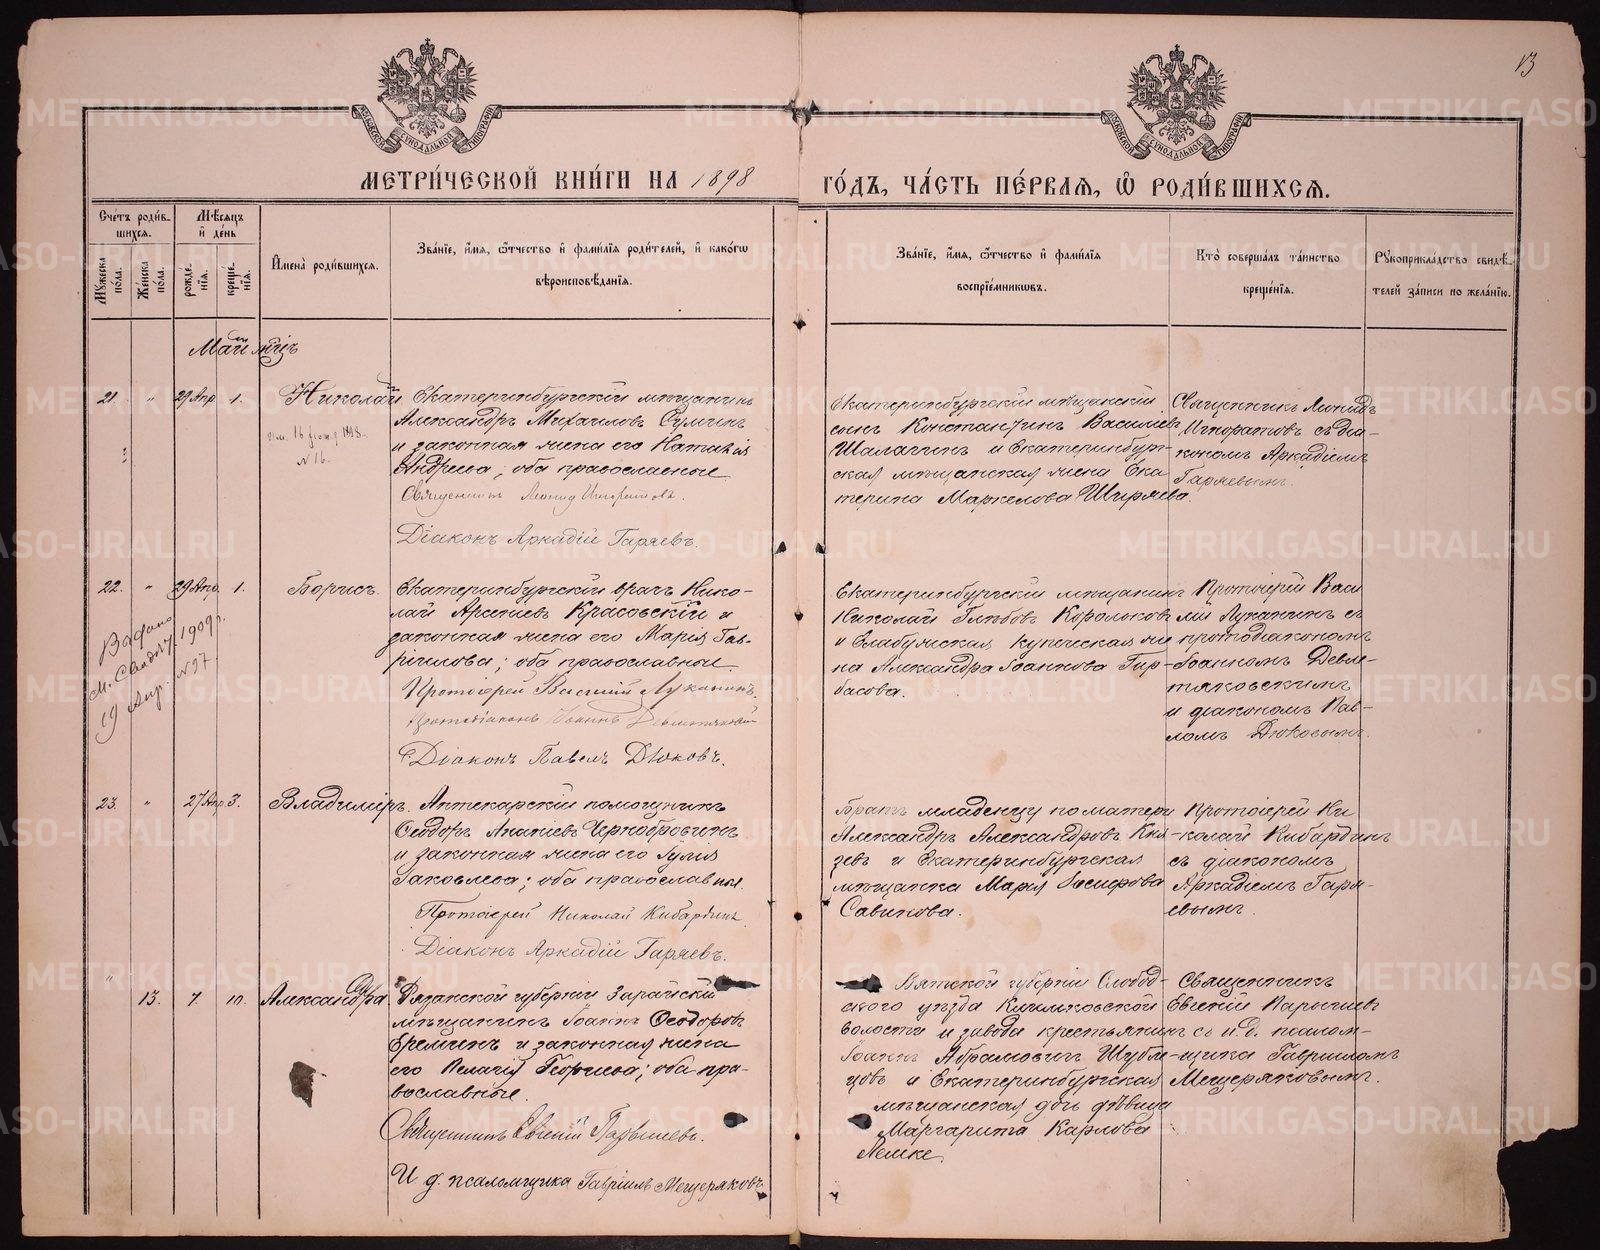 13
МОСКОВСКОЙ СѴНОДАЛЬНОЙ ТИПОГРАФІИ
МОСКОВСКОЙ СѴНОДАЛЬНОЙ ТИПОГРАФІИ
МЕТРИ́ЧЕСКОЙ КНИ́ГИ НА 1898 ГО́ДЪ, ЧА́СТЬ ПЕ́РВАЯ, Ѡ҆ РОДИ́ВШИХСЯ.
Сче́тъ роди́в-
шихся.
Мѣ́сяцъ
и҆ де́нь
Мꙋжеска по́ла.
Же́нска по́ла.
рожде́нїя.
креще́нїя.
И҆мена̀ роди́вшихся.
Зва́нїе, и҆́мя, ѻ҆́тчество и҆ фами́лїя роди́телей, и҆ како́гѡ
вѣроисповѣ́данїя.
Зва́нїе, и҆́мя, ѻ҆́тчество и҆ фами́лїя
воспрїе́мникѡвъ.
Кто̀ соверша́лъ та́инство
креще́нїя.
Рꙋкоприкла́дство свидѣ́-
телей за́писи по жела́нїю.
Май мцъ
21. " 29 Апр. 1. Николай
№ 16.
Екатеринбургскій мѣщанинъ
Александръ Михаиловъ Суминъ
и законная жена его Наталія
Андреева; оба православные
Священникъ Леонид Игноратовъ.
Діаконъ Аркадій Гаряевъ.
Екатеринбургскій мѣщанскій
сынъ Константинъ Василіевъ
Шалагинъ и Екатеринбург-
ская мѣщанская жена Ека
терина Маркелова Ширяева.
Священникъ Леонидъ
Игноратовъ съ діа-
кономъ Аркадіемъ
Гаряевымъ.
22. " 29 Апр. 1. Борисъ.
Выдано
1909 г.
19 Апр. №97
Екатеринбургскій врачъ Нико-
лай Арсеніевъ Красовскій и
законная жена его Марія Гав-
ріилова; оба православные.
Протоіерей Василій Луканинъ.
Протодіаконъ Іоаннъ Девлетяковскій
Діаконъ Павелъ Дюковъ.
Екатеринбургскій мѣщанинъ
Николай Глѣбовъ Корольковъ
и Елабужская купеческая же
на Александра Іоаннова Гир-
басова.
Протоіерей Васи
лій Луканинъ съ
протодіакономъ
Іоанномъ Девле-
тяковскимъ
и діакономъ Пав-
ломъ Дюковымъ.
23. " 27 Апр. 3. Владиміръ.
Аптекарскій помощникъ
Ѳеодоръ Ананіевъ Чернобровинъ
и законная жена его Юлія
Іаковлева; оба православные.
Протоіерей Николай Кибардинъ
Діаконъ Аркадій Гаряевъ.
Братъ младенцу по матери
Александръ Александровъ Кня-
зевъ и Екатеринбургская
мѣщанка Марія Іосифова
Савинова.
Протоіерей Ни
колай Кибардинъ
съ діакономъ
Аркадіемъ Гаря-
евымъ.
" 13. 7. 10. Александра.
Рязанской губерніи Зарайскій
мѣщанинъ Іоаннъ Ѳеодоровъ
Ереминъ и законная жена
его Пелагія Георгіева; оба пра-
вославные.
Священникъ Евгеній Парышевъ.
И д. псаломщика Гавріилъ Мещеряковъ
Вятской губерніи Слобод-
ского уѣзда Кирсинской
волости и завода крестьянинъ
Іоаннъ Абрамовичъ Шубни-
цовъ и Екатеринбургская
мѣщанская дочь дѣвица
Маргарита Карлова
Лемке.
Священникъ
Евгеній Парышевъ
съ и.д. псалом-
щика Гавріиломъ
Мещеряковымъ.
METRIKI.GASO-URAL.RU